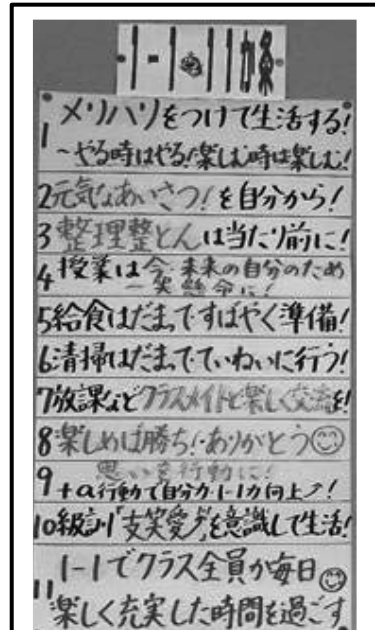 1-1の11か条
1 メリハリをつけて生活する!
~やる時はやる!楽しむ時は楽しむ!
2元気なあいさつ!を自分から!
3 整理整とんは当たり前に!
4 授業は今・未来の自分のため
一生懸命に!
5給食はだまってすばやく準備!
6清掃はだまってていねいに行う!
7放課などクラスメイトと楽しく交流を!
8楽しめば勝ち!ありがとう☺
思い立行動に!
9 +α行動で自分力1-1力向上↗!
10級訓「支笑愛夢」を意識して生活!
11 1-1でクラス全員が毎日☺
楽しく充実した時間を過ごす